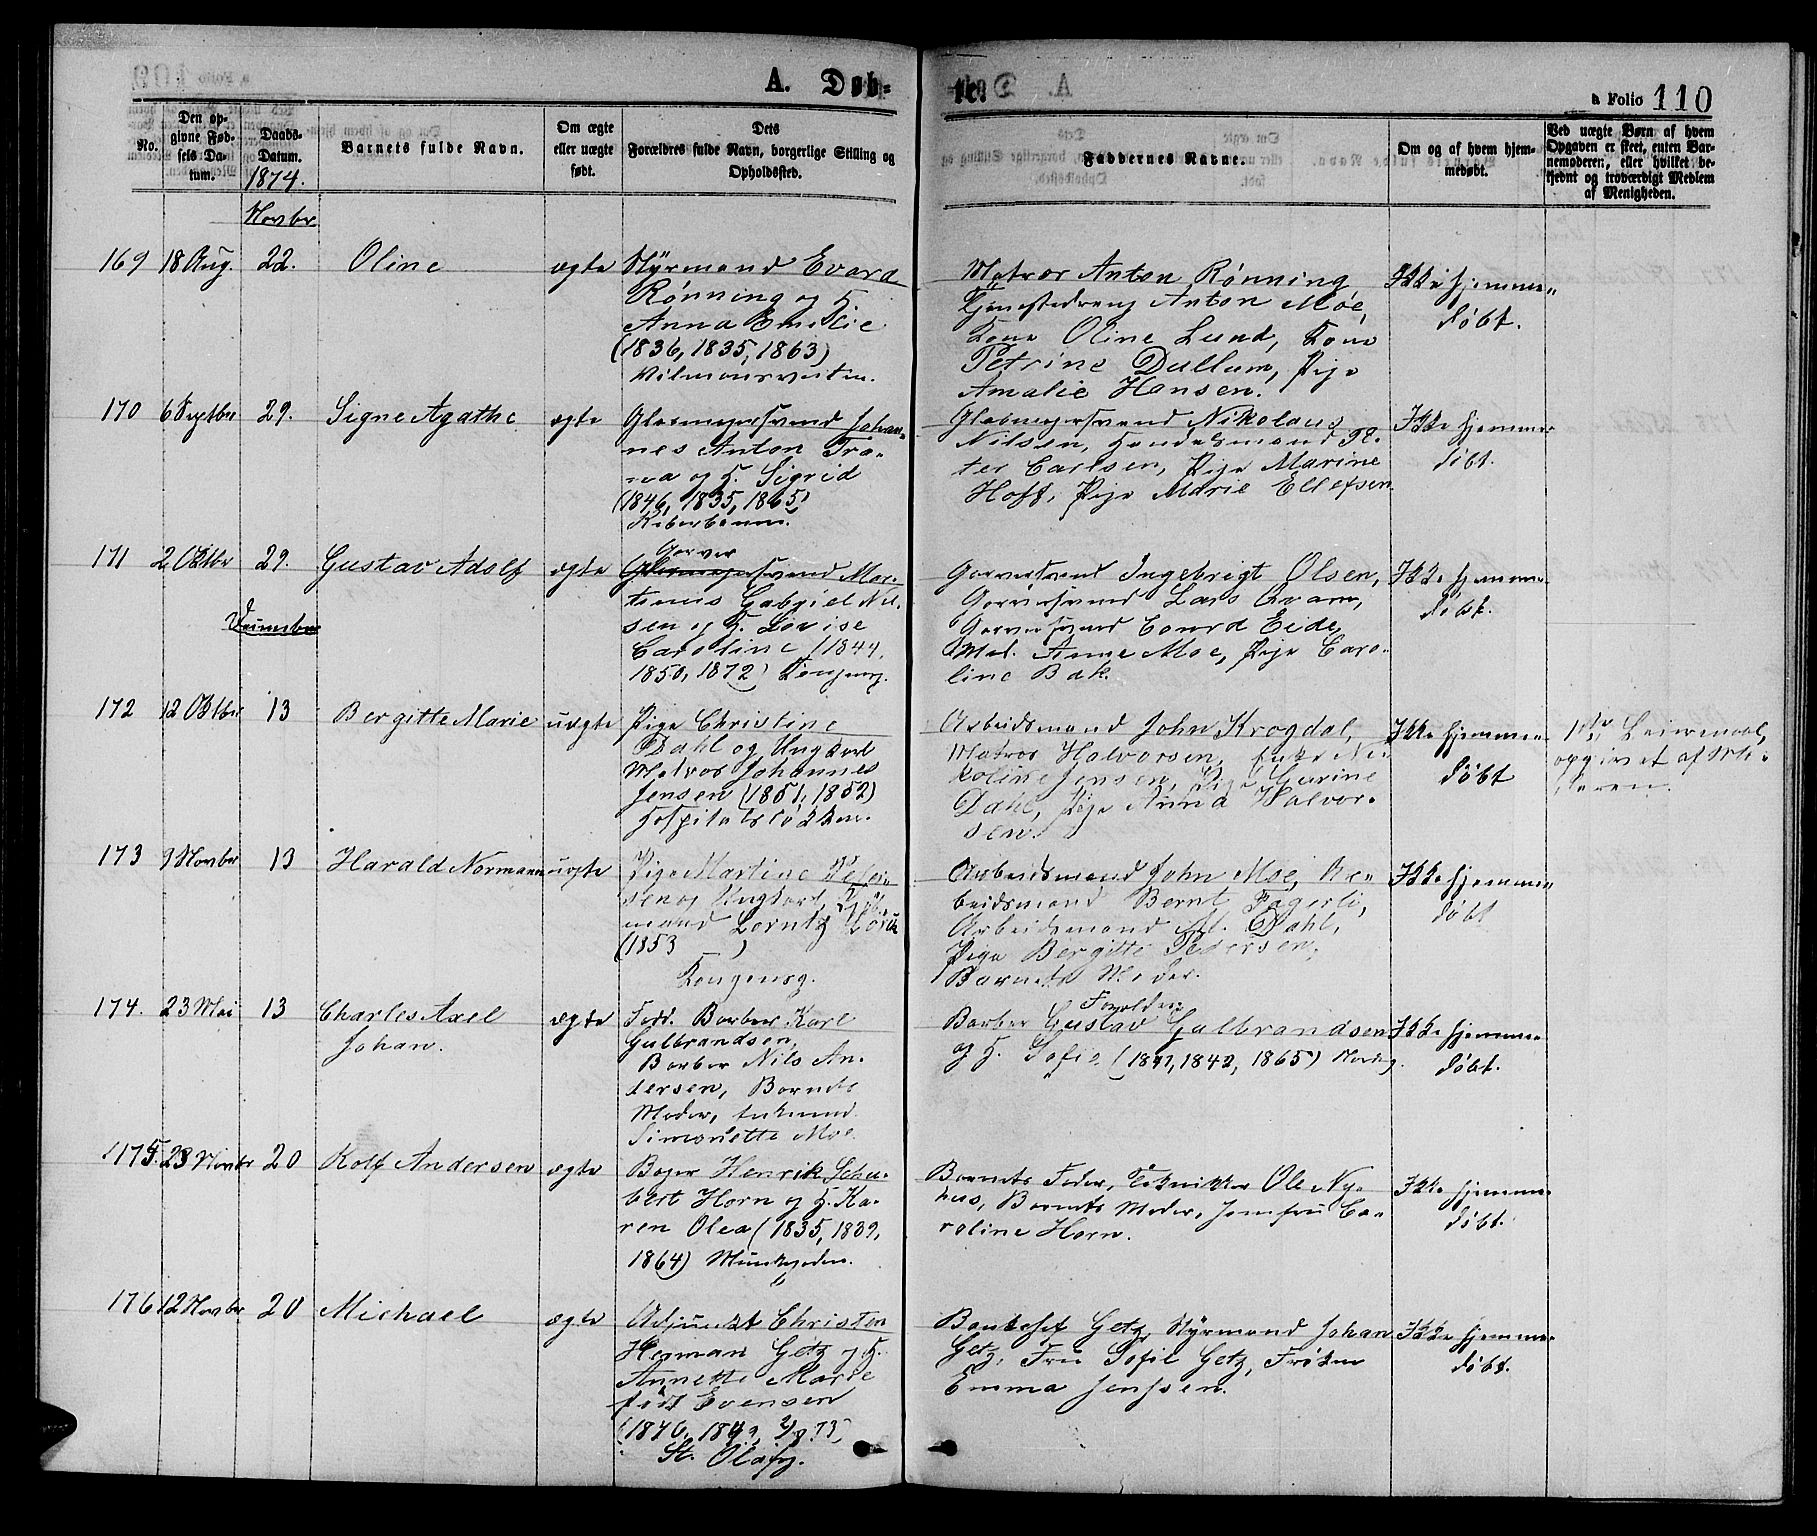 A. Døb-
te.
a Folio 110
No.
Den op-
givne Fød-
sels Da-
tum.
Daabs-
Datum.
1874.
Barnets fulde Navn.
Om ægte
eller uægte
født.
Dets
Forældres fulde Navn, borgerlige Stilling og
Opholdssted.
Faddernes Navne.
Om og af hvem hjem-
medøbt.
Ved uægte Børn af hvem
Opgaven er skeet, enten Bar-
nemoderen, eller hvilket be-
kjendt og troværdigt Medlem
af Menigheden.
Novbr.
169 18 Aug. 22. Oline ægte Styrmand Evard
Rønning og H.
Anna Emilie
(1836, 1835, 1863)
Matros Anton Rønning
Tjenestedreng Anton Moe,
Kone Oline Lund, Kone
Petrine Dullum, Pige
Amalie Hansen.
Ikke hjemme-
døbt.
170 6 Septbr 29. Signe Agathe ægte Glasmagersvend Johan-
nes Anton Tra-
na og H. Sigrid
(1846, 1835, 1865)
Glasmagersvend Nikolaus
Nilsen, Handelsmand Pe-
ter Carlsen, Pige Marine
Hoff, Pige Marie Ellefsen.
Ikke hjemme-
døbt.
171 2 Oktbr 29. Gustav Adolf ægte Garver
Glasmagersvend Mar-
tinus Gabriel Nil-
sen og H. Lovise
Caroline (1844,
1850, 1872) Kongensg.
Garversvend Ingebrigt Olsen,
Garversvend Lars Kvam,
Garversvend Conrd Eide,
Mad. Anne Moe, Pige Caro-
line Bak.
Ikke hjemme-
døbt.
Decembr
172 12 Oktbr 13 Bergitte Marie uægte Pige Christine
Dahl og Ungkarl
Matros Johannes
Jensen (1851, 1852)
Hospitalsløkken.
Arbeidsmand John Krogdal,
Matros Halvorsen, Enke Ni-
koline Jensen, Pige Gurine
Dahl, Pige Anna Halvor-
sen.
Ikke hjemme-
døbt
1ste Leiermaal,
opgivet af Mo-
deren.
173 9 Novbr 13 Harald Normann uægte Pige Martine Peter-
sen og Ungkarl,
mand Lorntz
(1853 )
Kongensg.
Arbeidsmand John Moe, Ar-
beidsmand Bernt Fagerli,
Arbeidsmand M. Dahl,
Pige Bergitte Pedersen,
Barnets Moder.
Ikke hjemme-
døbt
174. 23 Mai 13 Charles Axel
Johan.
ægte Fadd. Barber Karl
Gulbrandsen,
Barber Nils An-
dersen, Barnets
Moder,
Simonette Moe.
Forældre:
Barber Gustav Gulbrandsen
og H. Sofie (1841, 1842, 1865) Nordg.
Ikke hjemme-
døbt.
175. 23 Novbr 20 Rolf Andersen ægte Bager Henrik Schu-
bert Horn og H. Ka-
ren Olea (1835, 1839,
1864) Munkegaden.
Barnets Fader, Tekniker Ole Ny-
hus, Barnets Moder, Jomfru Ca-
roline Horn.
Ikke hjemme-
døbt.
176 12 Novbr 20 Michael ægte Adjunkt Christen
Herman Getz og H.
Annette Marie
født Evensen
St. Olafsg.
Bankchef Getz, Styrmand Johan
Getz, Fru Sofie Getz, Frøken
Emma Jenssen.
Ikke hjemme-
døbt.